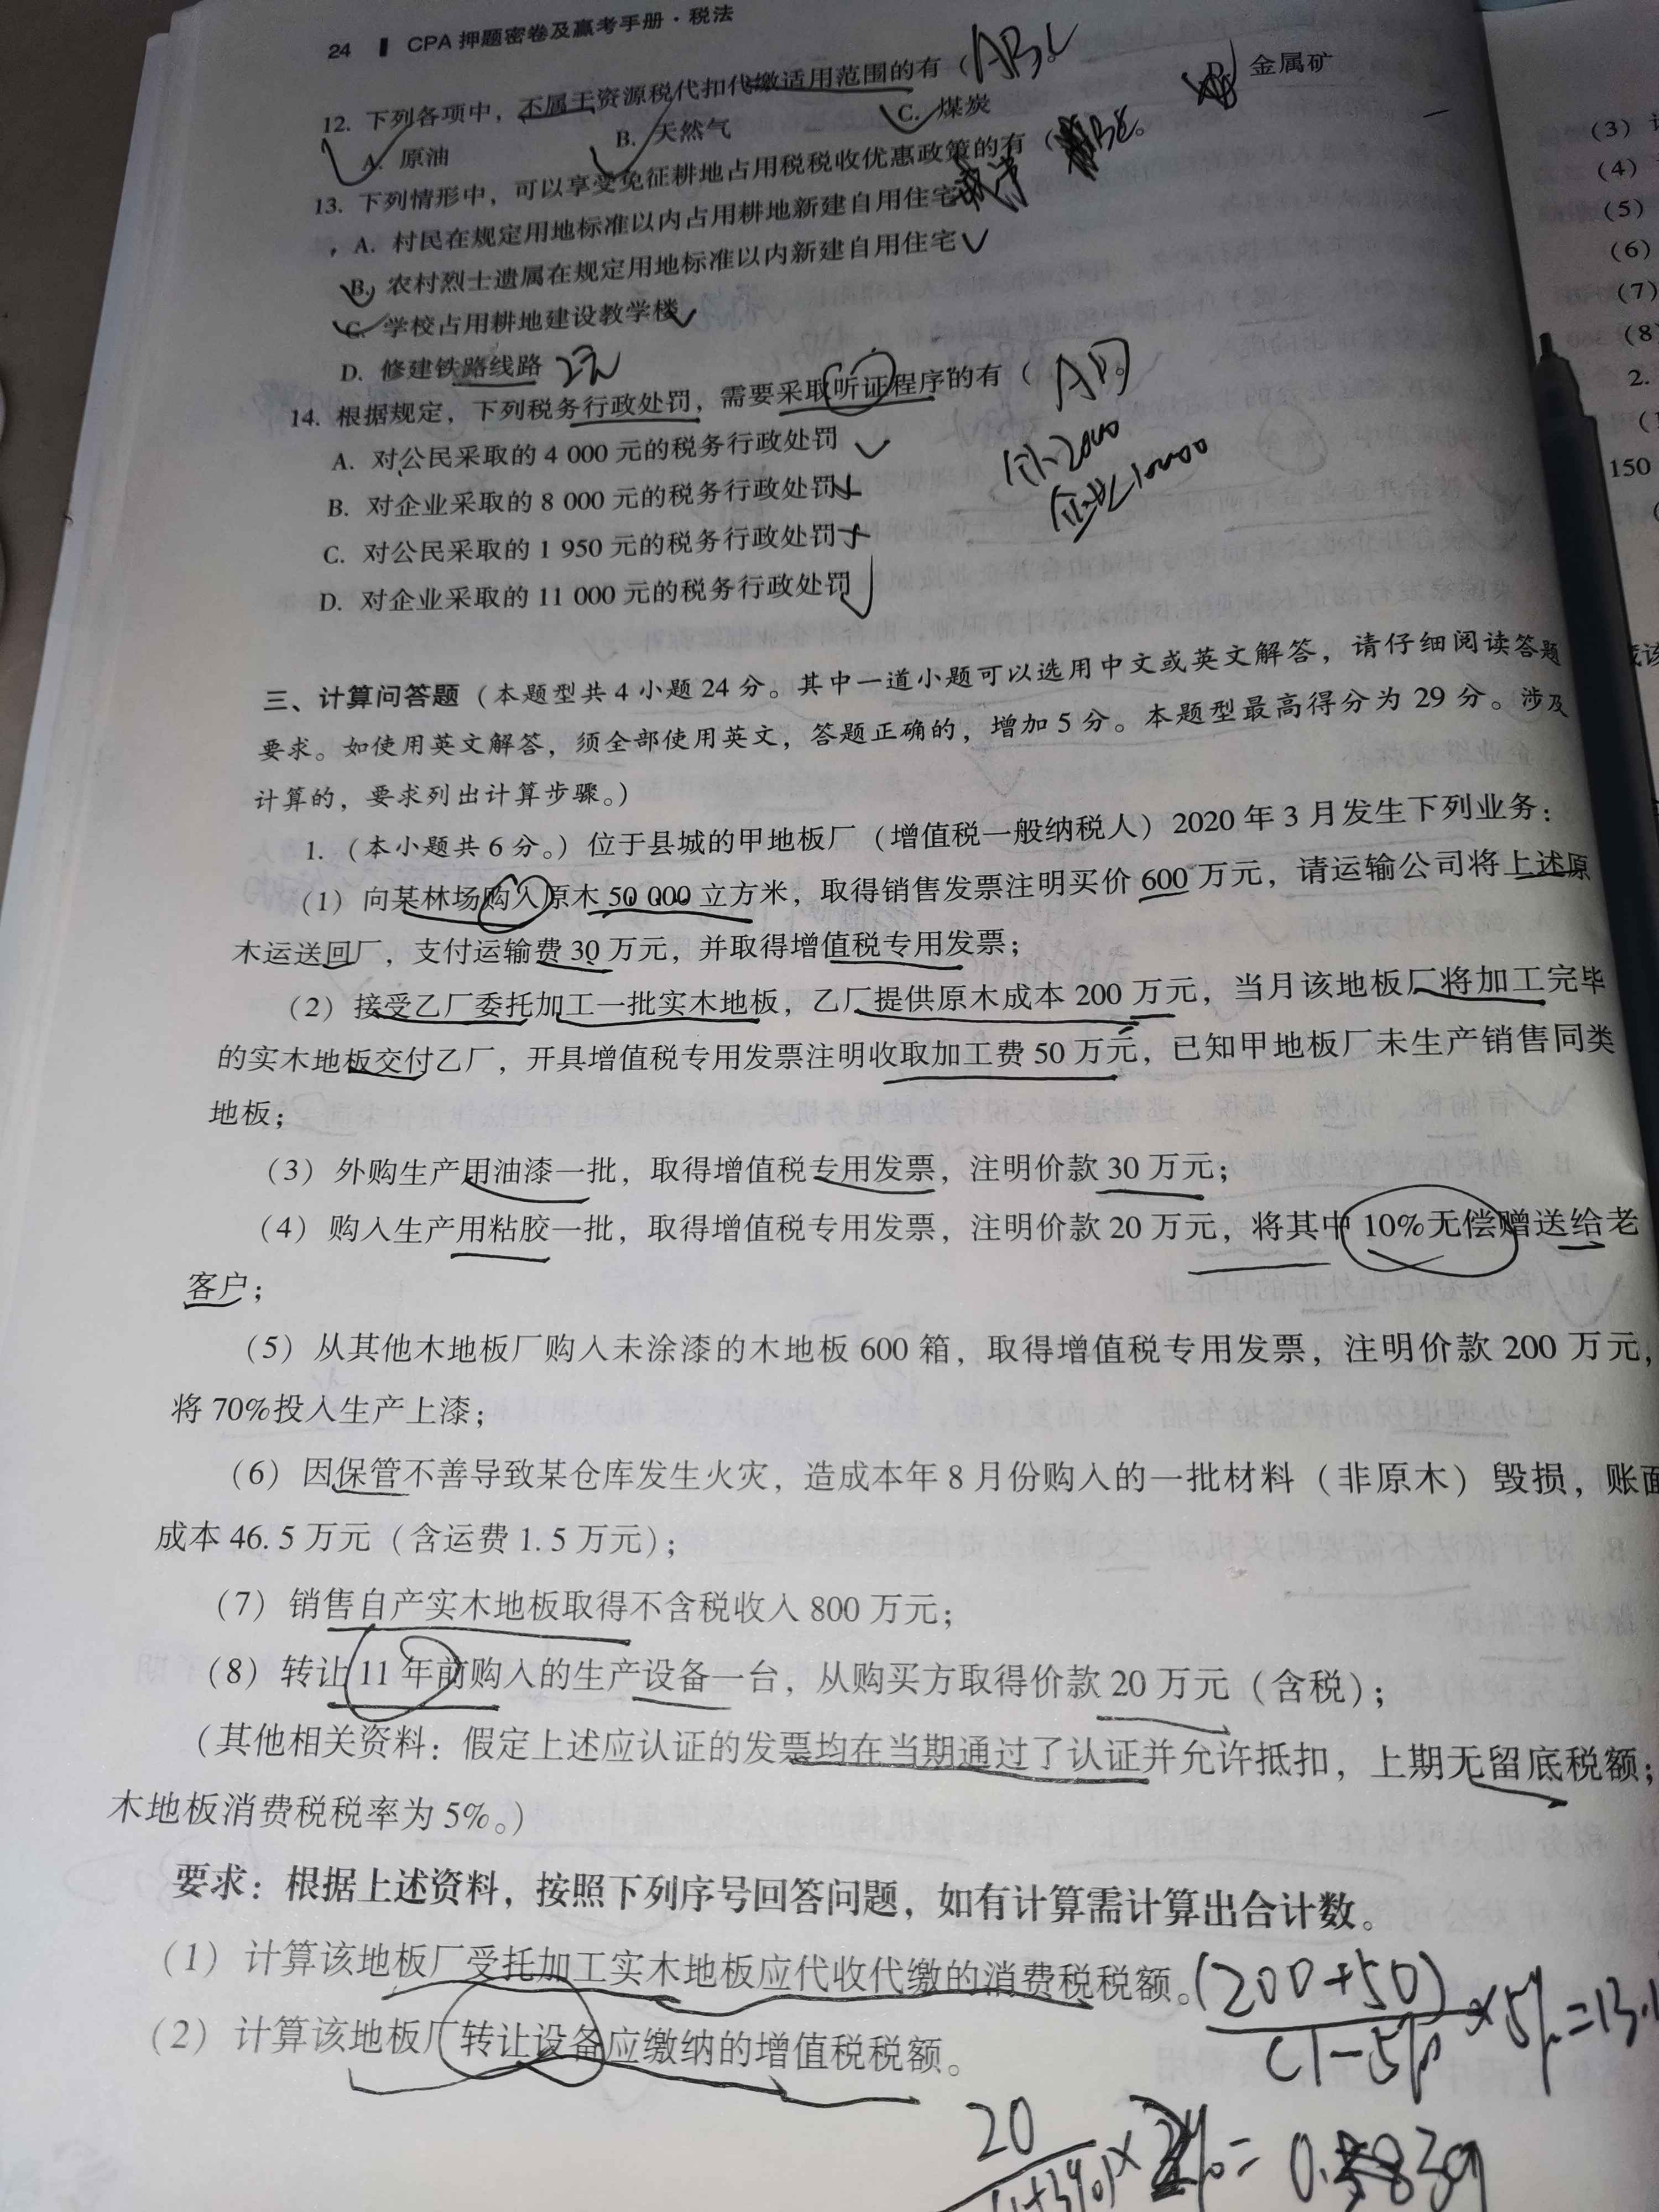 24 CPA 押题密卷及赢考手册·税法
12. 下列各项中，不属于资源税代扣代缴适用范围的有（ ABC
A. 原油 B. 天然气 C. 煤炭 D. 金属矿
13. 下列情形中，可以享受免征耕地占用税税收优惠政策的有（ BC 。
A. 村民在规定用地标准以内占用耕地新建自用住宅
B. 农村烈士遗属在规定用地标准以内新建自用住宅
C. 学校占用耕地建设教学楼
D. 修建铁路线路 2元
14. 根据规定，下列税务行政处罚，需要采取听证程序的有（ AD
A. 对公民采取的 4 000 元的税务行政处罚
个人2000
B. 对企业采取的 8 000 元的税务行政处罚
企业10000
C. 对公民采取的 1 950 元的税务行政处罚
D. 对企业采取的 11 000 元的税务行政处罚
三、计算问答题（本题型共 4 小题 24 分。其中一道小题可以选用中文或英文解答，请仔细阅读答题
要求。如使用英文解答，须全部使用英文，答题正确的，增加 5 分。本题型最高得分为 29 分。涉及
计算的，要求列出计算步骤。）
1.（本小题共 6 分。）位于县城的甲地板厂（增值税一般纳税人）2020 年 3 月发生下列业务：
（1）向某林场购入原木 50 000 立方米，取得销售发票注明买价 600 万元，请运输公司将上述原
木运送回厂，支付运输费 30 万元，并取得增值税专用发票；
（2）接受乙厂委托加工一批实木地板，乙厂提供原木成本 200 万元，当月该地板厂将加工完毕
的实木地板交付乙厂，开具增值税专用发票注明收取加工费 50 万元，已知甲地板厂未生产销售同类
地板；
（3）外购生产用油漆一批，取得增值税专用发票，注明价款 30 万元；
（4）购入生产用粘胶一批，取得增值税专用发票，注明价款 20 万元，将其中 10%无偿赠送给老
客户；
（5）从其他木地板厂购入未涂漆的木地板 600 箱，取得增值税专用发票，注明价款 200 万元，
将 70%投入生产上漆；
（6）因保管不善导致某仓库发生火灾，造成本年 8 月份购入的一批材料（非原木）毁损，账面
成本 46.5 万元（含运费 1.5 万元）；
（7）销售自产实木地板取得不含税收入 800 万元；
（8）转让 11 年前购入的生产设备一台，从购买方取得价款 20 万元（含税）；
（其他相关资料：假定上述应认证的发票均在当期通过了认证并允许抵扣，上期无留底税额；
木地板消费税税率为 5%。）
要求：根据上述资料，按照下列序号回答问题，如有计算需计算出合计数。
（1）计算该地板厂受托加工实木地板应代收代缴的消费税税额。
(200+50)/(1-5%)×5%=13.1
（2）计算该地板厂转让设备应缴纳的增值税税额。
（3）
（4）
（5）
（6）
（7）
（8
2.
（1
150